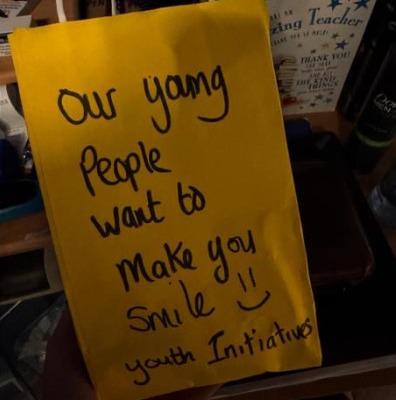 our young
People
want to
make you
smile !!
youth Initiatives
zing Teacher
THANK YOU